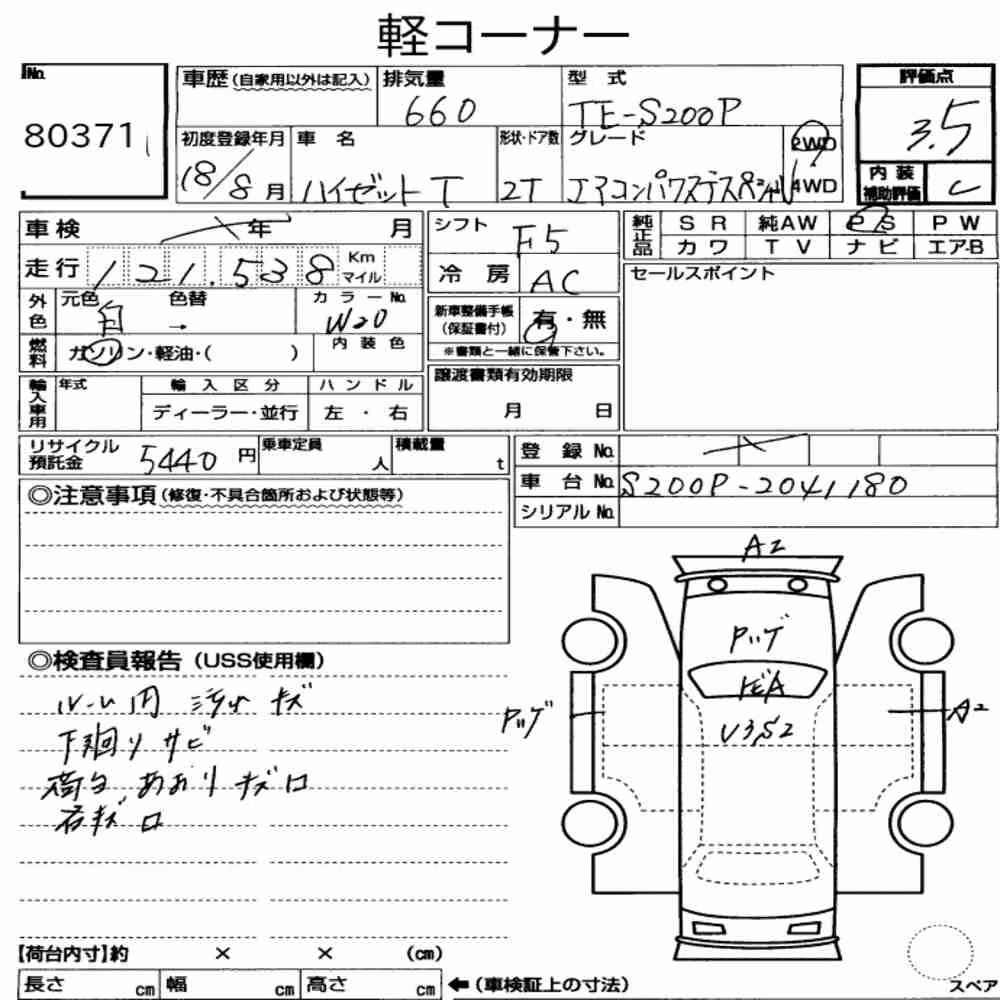 軽コーナー
No.
80371
車歴(自家用以外は記入)
排気量
660
型 式
TE-S200P
評価点
3.5
初度登録年月
18/8月
車 名
ハイゼットT
形状・ドア数
2T
グレード
エアコンパワステスペシャル
2WD
4WD
内装
補助評価
C
車検 年 月
走行 121,538 Km
マイル
外色
元色
白
色替
→
カラーNo.
W20
燃料
ガソリン・軽油・( )
内装色
輸入車用
年式
輸入区分
ディーラー・並行
ハンドル
左・右
シフト
F5
冷房
AC
新車整備手帳
(保証書付)
有・無
※書類と一緒に保管下さい。
譲渡書類有効期限
月 日
純正品
SR 純AW PS PW
カワ TV ナビ エアB
セールスポイント
リサイクル
預託金
5440円
乗車定員
人
積載量
t
登録No.
車台No. S200P-2041180
シリアルNo.
◎注意事項(修復・不具合箇所および状態等)
◎検査員報告(USS使用欄)
ル-ム内 汚れ キズ
下廻り サビ
荷台 あおり キズロ
各キズロ
A2
Pッゲ
トビA
U3,S2
Pッゲ
A2
【荷台内寸】約 × × (cm)
長さ cm 幅 cm 高さ cm
←(車検証上の寸法)
スペア